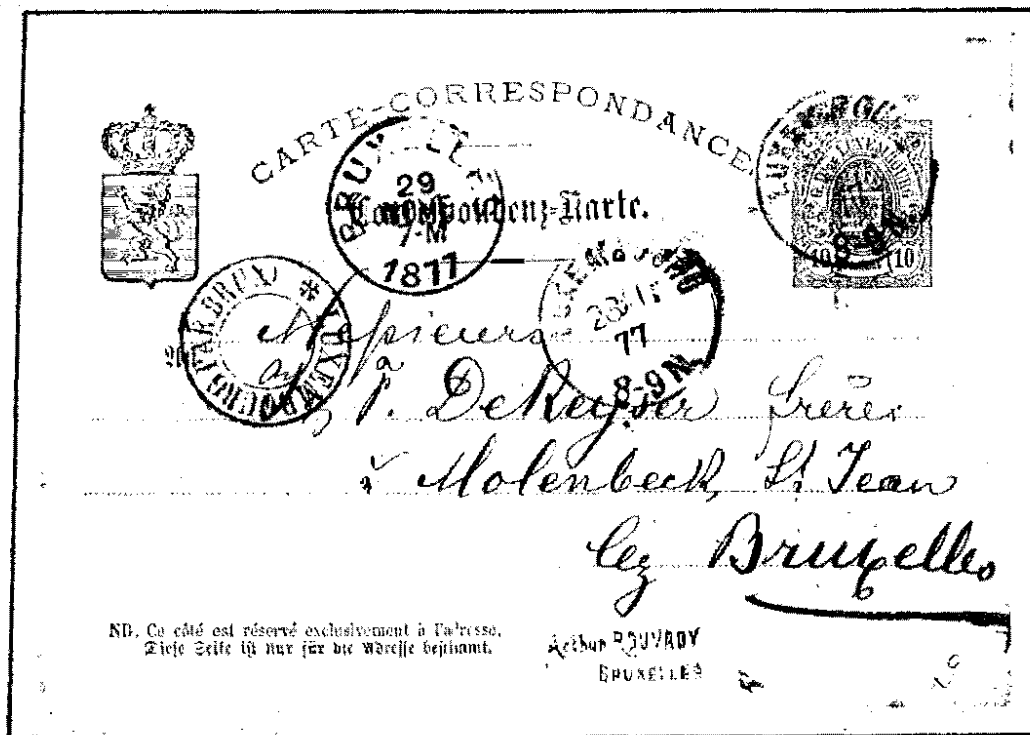 CARTE-CORRESPONDANCE
Correspondenz-Karte.
BRUXELLES
29
7-M
1877
LUXEMBOURG
8-9 N
LUXEMBOURG
28
77
8-9 N
LUXEMBOURG PAR BRUX
10 10
Messieurs
P. DeKeyser frères
à Molenbeck, St Jean
lez Bruxelles
NB. Ce côté est réservé exclusivement à l'adresse.
Diese Seite ist nur für die Adresse bestimmt.
Arthur
BRUXELLES